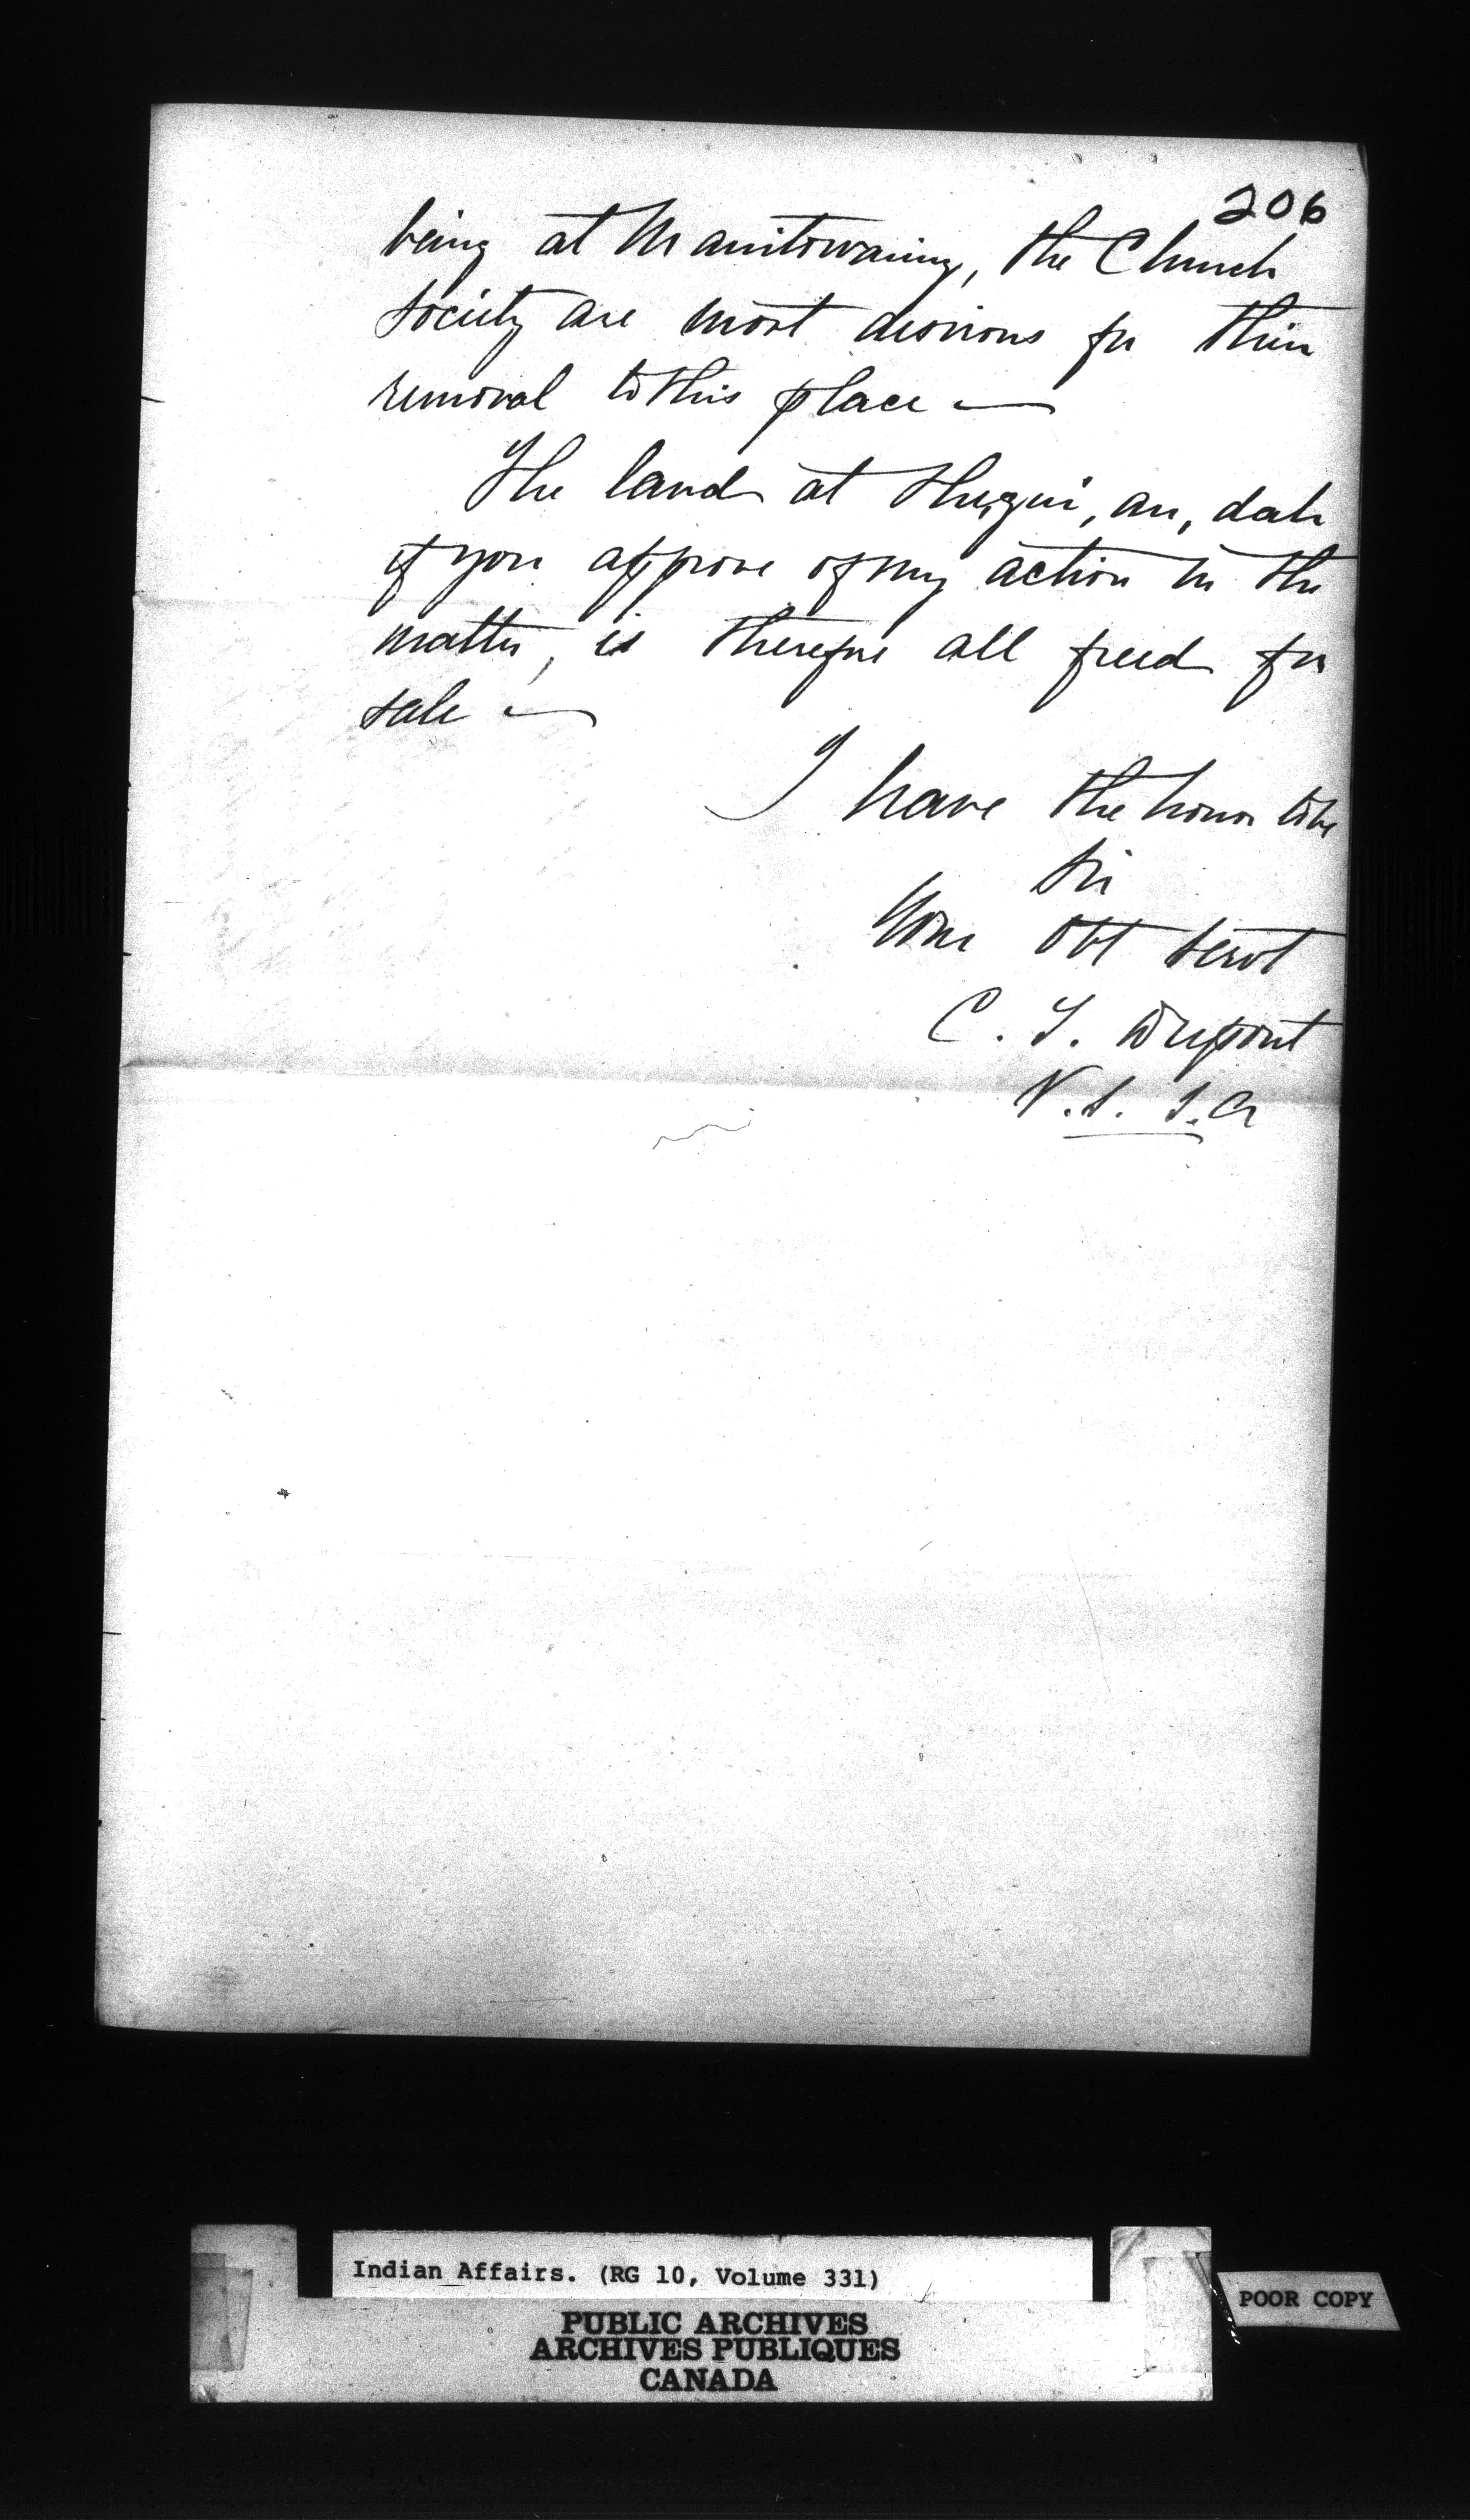 206
being at Manitowaning, the Church
Society are most desirous for their
removal to this place —
The land at She,gui,an,dah
if you approve of my action in the
matter, is therefore all freed for
sale —
I have the honor to be
Sir
Your Obt Servt
C. T. Dupont
V. S. I. A
Indian Affairs. (RG 10, Volume 331)
PUBLIC ARCHIVES
ARCHIVES PUBLIQUES
CANADA
POOR COPY